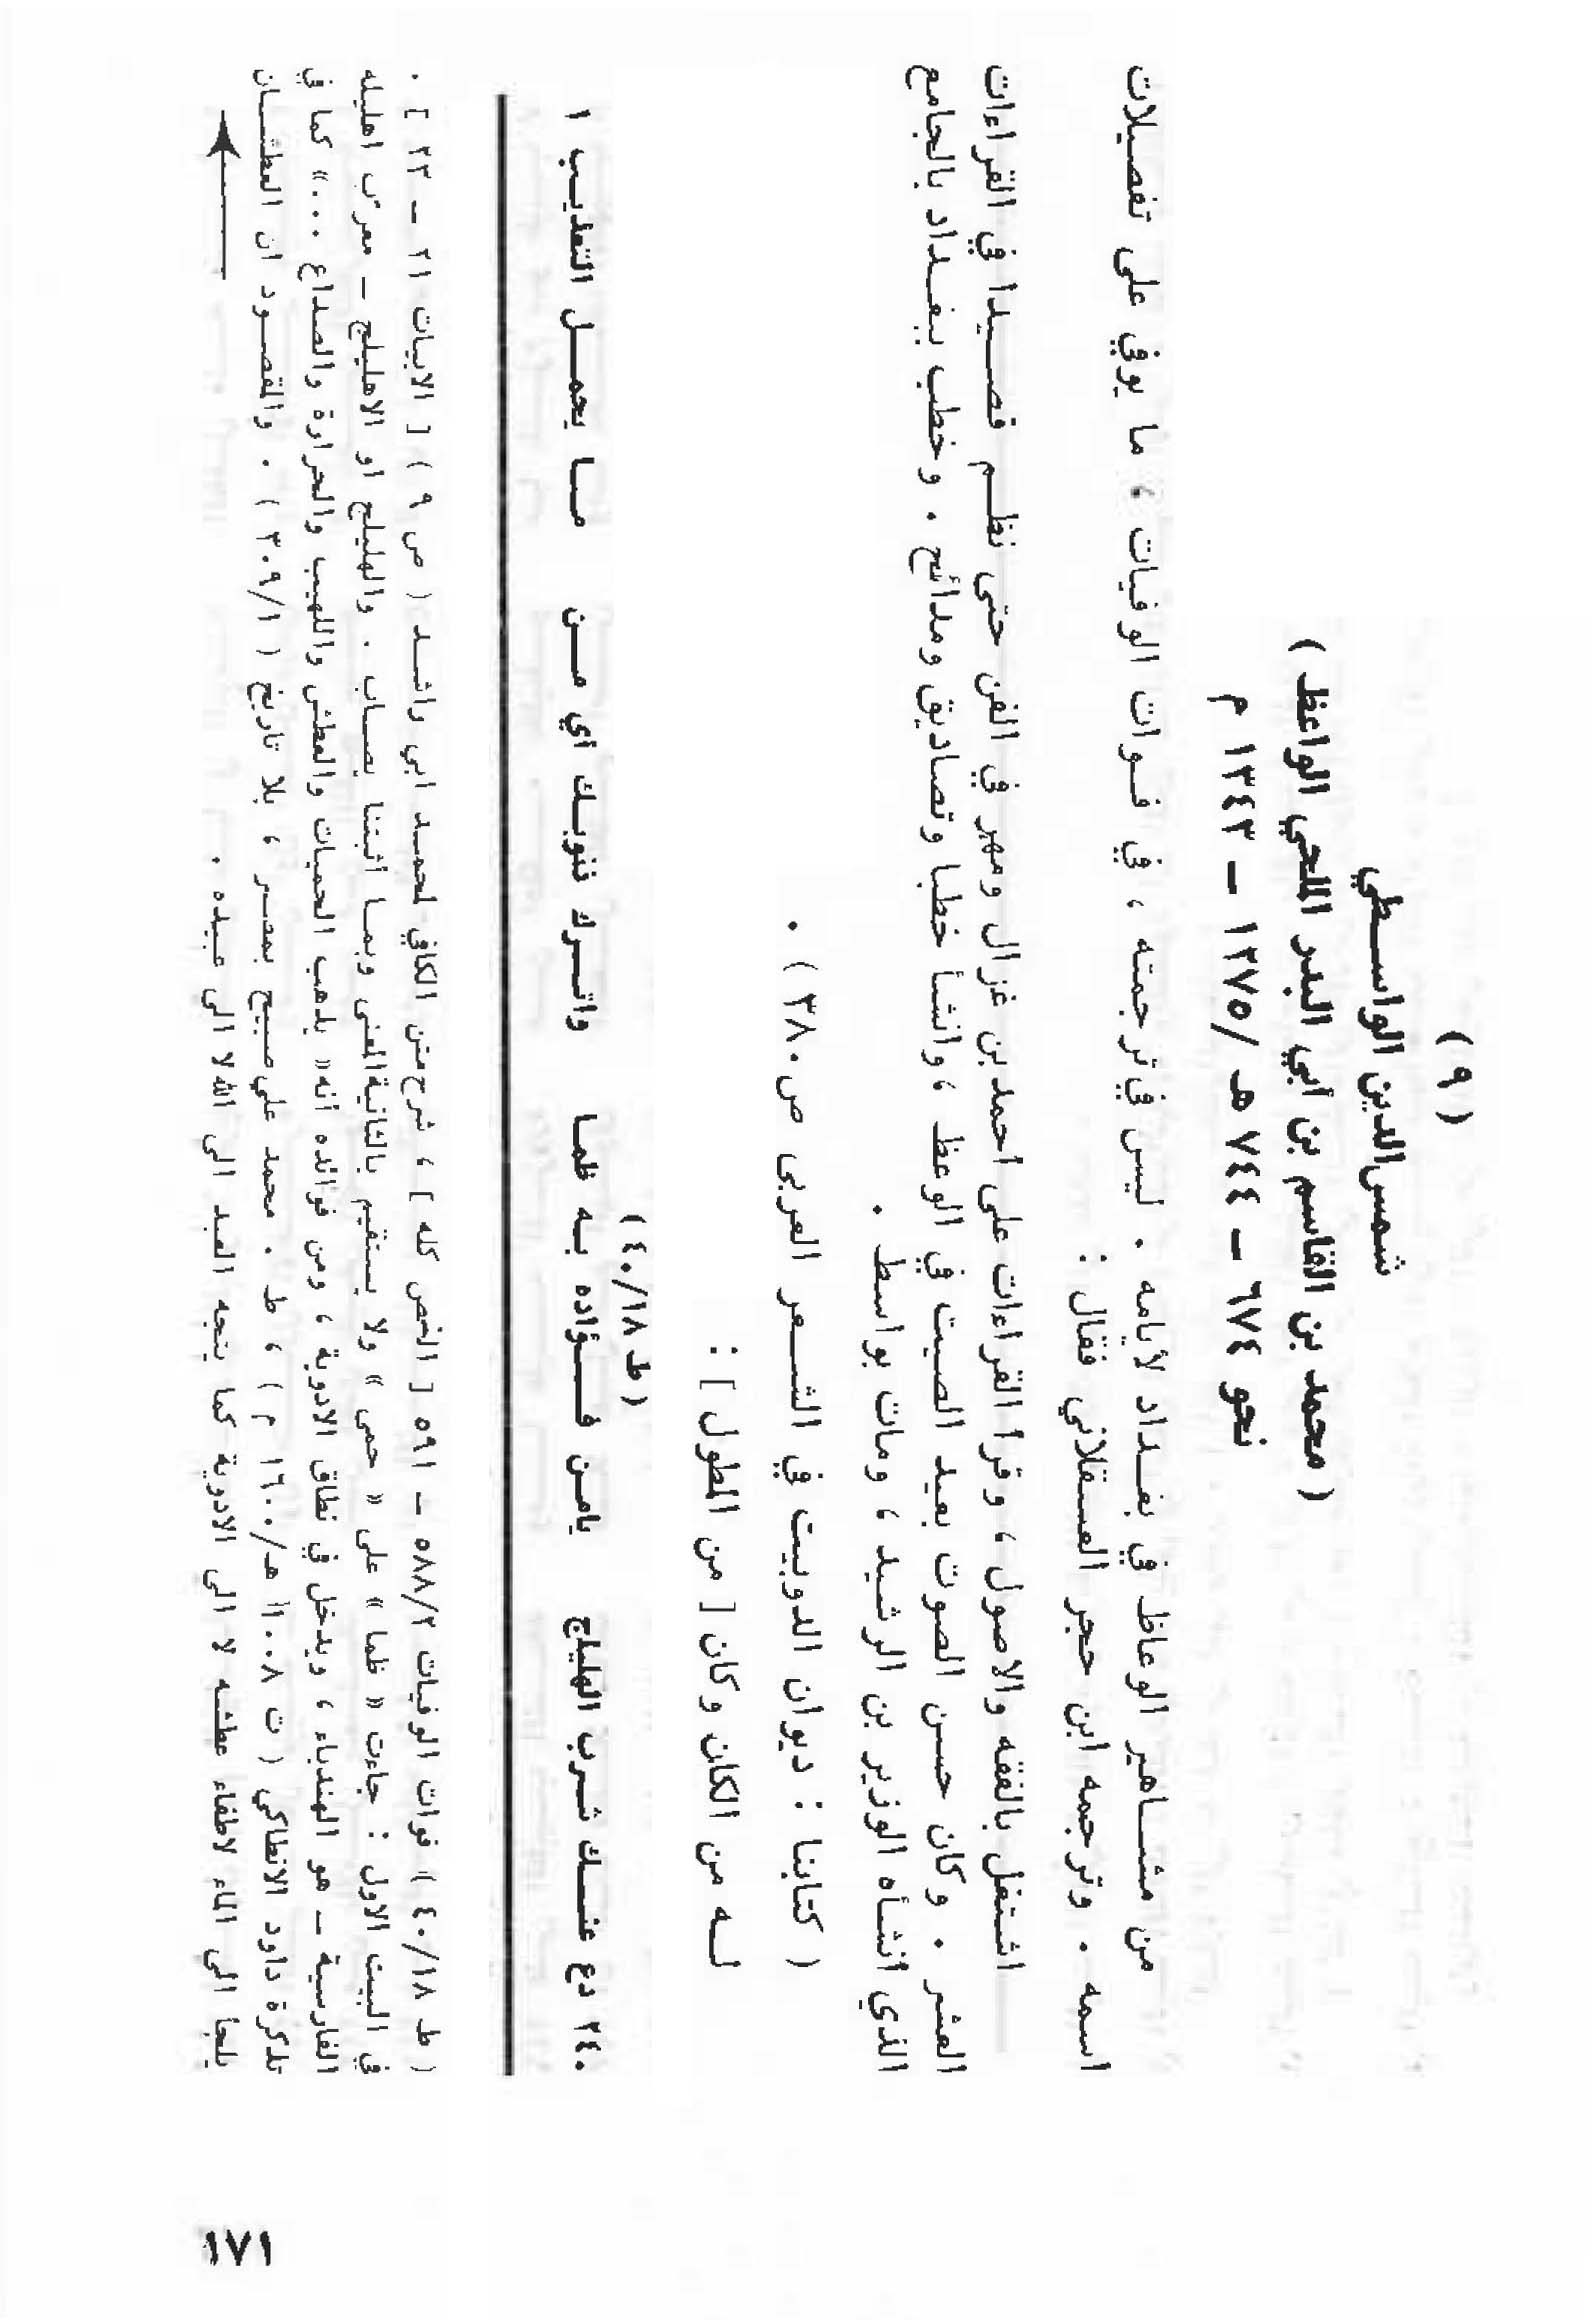 ( ٩ )
شمس الدين الواسطي
( محمد بن القاسم بن أبي البدر الملحي الواعظ )
نحو ٦٧٤ – ٧٤٤ هـ / ١٢٧٥ – ١٣٤٣ م
من مشاهير الوعاظ في بغداد لأيامه . ليس في ترجمته ، في فوات الوفيات ، ما يوفي على تفصيلات
اسمه . وترجمه ابن حجر العسقلاني فقال :
اشتغل بالفقه والاصول ، وقرأ القراءات على احمد بن غزال ومهر في الفن حتى نظم قصيدا في القراءات
العشر . وكان حسن الصوت بعيد الصيت في الوعظ ، وانشأ خطبا وتصاديق ومدائح . وخطب ببغداد بالجامع
الذي انشأه الوزير بن الرشيد ، ومات بواسط .
( كتابنا : ديوان الدوبيت في الشعر العربى ص ٣٨٠ ) .
لـه من الكان وكان [ من المطول ] :
( ط ٤٠/١٨ )
٢٤٠ دع عنـك شرب الهليلج يامن فـؤاده بـه ظمـا واتـرك ذنوبـك أي مـن مـا يحمـل التعذيـب ١
( ط ٤٠/١٨ ) فوات الوفيات ٥٨٨/٢ – ٥٩١ [ النص كله ] ، شرح متن الكافي لمحمـد ابي راشـد ( ص ٩ ) [ الابيات ٢١ – ٢٣ ] .
في البيت الاول : جاءت « ظما » على « حمى » ولا يستقيم بالثانية المعنى وبمـا أثبتنا يصاب . والهليلج او الاهليلج – معرّب اهليله
الفارسية – هو الهندباء ، ويدخل في نطاق الادوية ، ومن فوائده أنه « يذهب الحميات والعطش واللهيب والحرارة والصداع ... » كما في
تذكرة داود الانطاكي ( ت ١٠٠٨ هـ/١٦٠٠ م ) ، ط . محمد علي صبيح بمصـر ، بلا تاريخ ( ٣٠٩/١ ) . والمقصود ان العطشان
يلجأ الى الماء لاطفاء عطشه لا الى الادوية كما يتجه العبد الى الله لا الى عبيده .
١٧١